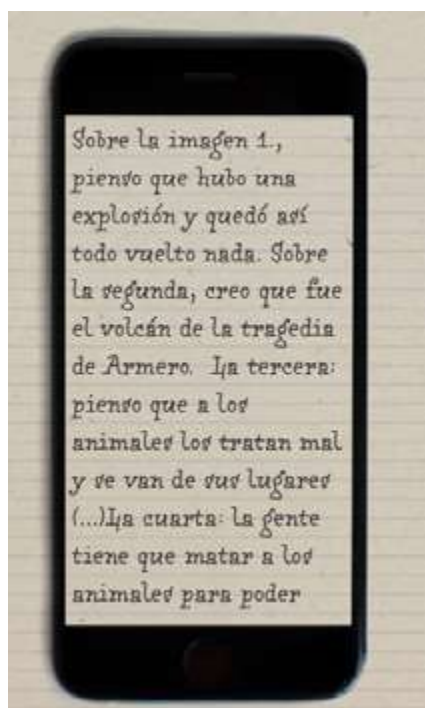 Sobre la imagen 1.,
pienso que hubo una
explosión y quedó así
todo vuelto nada. Sobre
la segunda, creo que fue
el volcán de la tragedia
de Armero. La tercera:
pienso que a los
animales los tratan mal
y se van de sus lugares
(...)La cuarta: la gente
tiene que matar a los
animales para poder